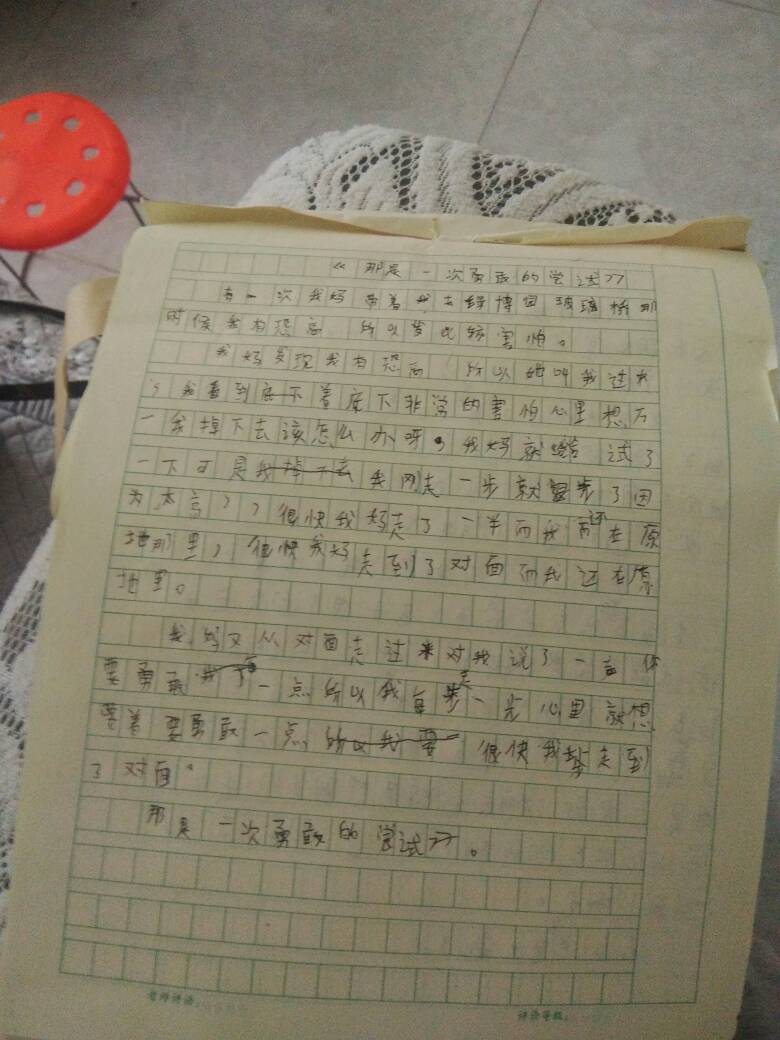 《那是一次勇敢的尝试》
有一次我妈带着我去绿博园玻璃桥那
时候我有恐高 所以 比较害怕。
我妈发现我有恐高 所以她叫我过来
我看到底下着底下非常的害怕心里想万
一我掉下去该怎么办呀 我妈就 试了
一下可是我掉下去我刚走一步就 了因
为太高 很快我妈走了一半而我还在原
地那里，很快我妈走到了对面而我还在原
地里。
我妈又从对面走过来对我说了一言你
要勇敢 一点所以我每走一步心里就想
着要勇敢一点所以我要 很快我 走到
了对面。
那是一次勇敢的尝试》。
老师评语：
评语等级：